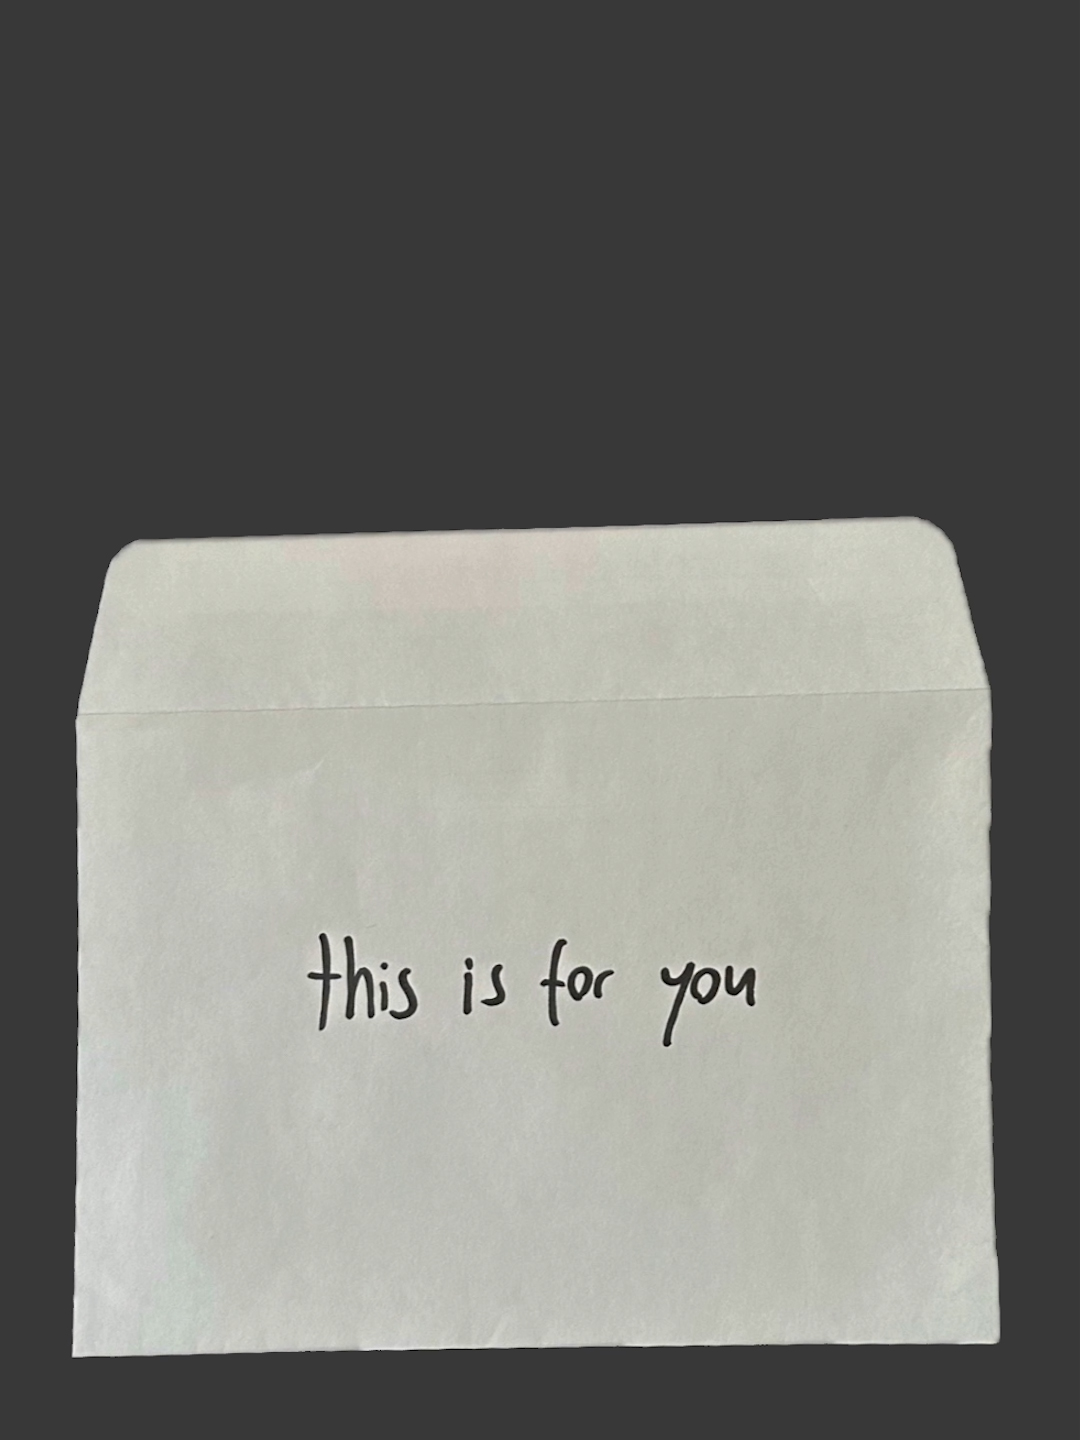 this is for you